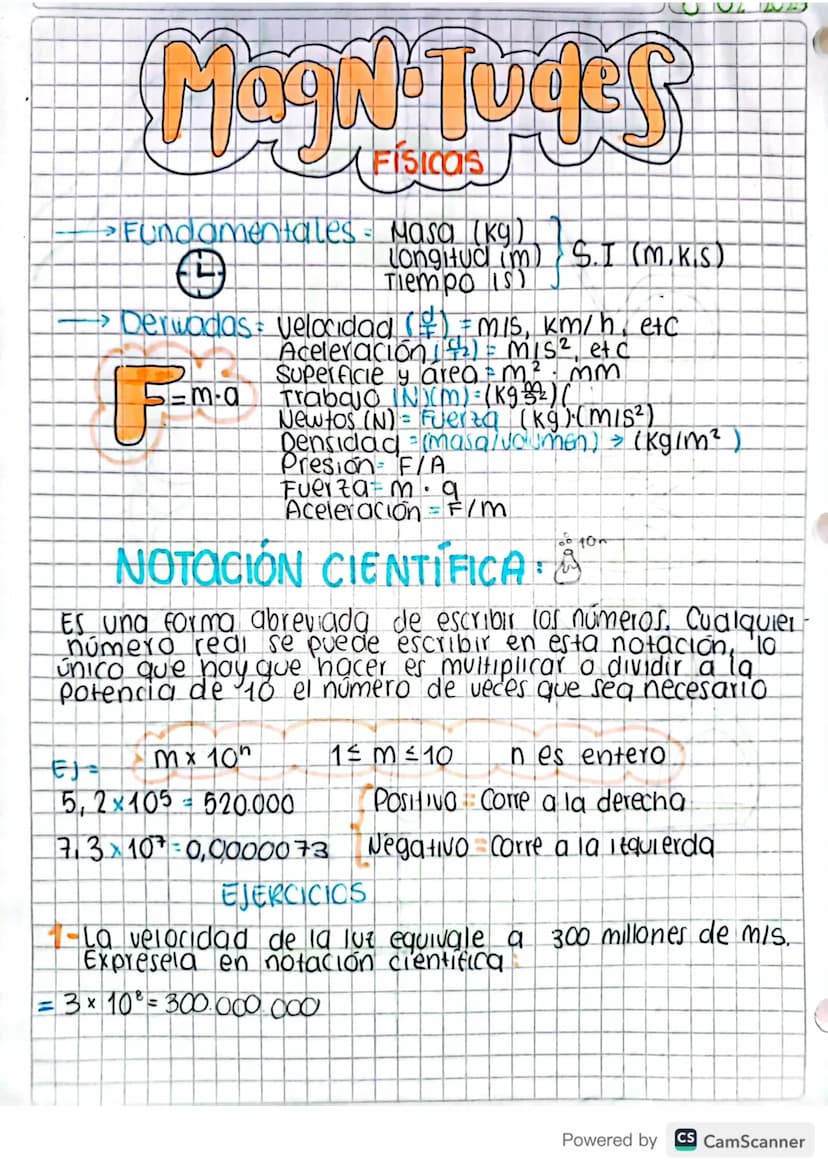 MagNiTudes
FÍSICAS
→ Fundamentales = Masa (kg)
Longitud (m)
Tiempo (s)
} S.I (m.k.s)
→ Derivadas = Velocidad (d/t) = m/s, km/h, etc
Aceleración = m/s², etc
Superficie y área = m² . mm
F = m·a
Trabajo (N)(m) = (kg m/s²)(
Newtos (N) = Fuerza (kg)·(m/s²)
Densidad = (masa/volumen) → (kg/m²)
Presión = F/A
Fuerza = m . a
Aceleración = F/m
NOTACIÓN CIENTÍFICA:
10n
Es una forma abreviada de escribir los números. Cualquier
número real se puede escribir en esta notación, lo
único que hay que hacer es multiplicar o dividir a la
potencia de 10 el número de veces que sea necesario
Ej = m x 10ⁿ 1 ≤ m ≤ 10 n es entero
5,2 x 10⁵ = 520.000 Positivo = Corre a la derecha
7,3 x 10⁷ = 0,0000073 Negativo = Corre a la izquierda
EJERCICIOS
1- La velocidad de la luz equivale a 300 millones de m/s.
Expresela en notación científica:
= 3 x 10⁸ = 300.000.000
Powered by CS CamScanner